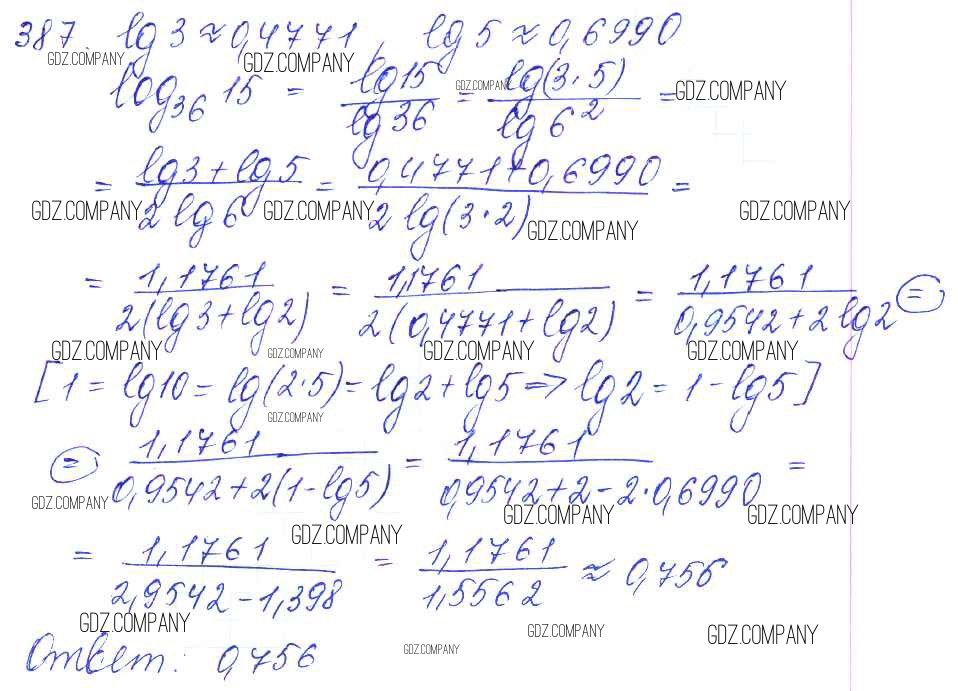 387. lg 3 ≈ 0,4771, lg 5 ≈ 0,6990
GDZ.COMPANY GDZ.COMPANY
log₃₆ 15 = lg 15 / lg 36 = lg(3·5) / lg 6² =
GDZ.COMPANY GDZ.COMPANY
= (lg 3 + lg 5) / (2 lg 6) = (0,4771 + 0,6990) / (2 lg(3·2)) =
GDZ.COMPANY GDZ.COMPANY GDZ.COMPANY GDZ.COMPANY
= 1,1761 / (2(lg 3 + lg 2)) = 1,1761 / (2(0,4771 + lg 2)) = 1,1761 / (0,9542 + 2 lg 2) =
GDZ.COMPANY GDZ.COMPANY GDZ.COMPANY GDZ.COMPANY
[1 = lg 10 = lg(2·5) = lg 2 + lg 5 => lg 2 = 1 - lg 5]
GDZ.COMPANY
= 1,1761 / (0,9542 + 2(1 - lg 5)) = 1,1761 / (0,9542 + 2 - 2·0,6990) =
GDZ.COMPANY GDZ.COMPANY GDZ.COMPANY GDZ.COMPANY
= 1,1761 / (2,9542 - 1,398) = 1,1761 / 1,5562 ≈ 0,756
GDZ.COMPANY GDZ.COMPANY GDZ.COMPANY
Ответ: 0,756
GDZ.COMPANY